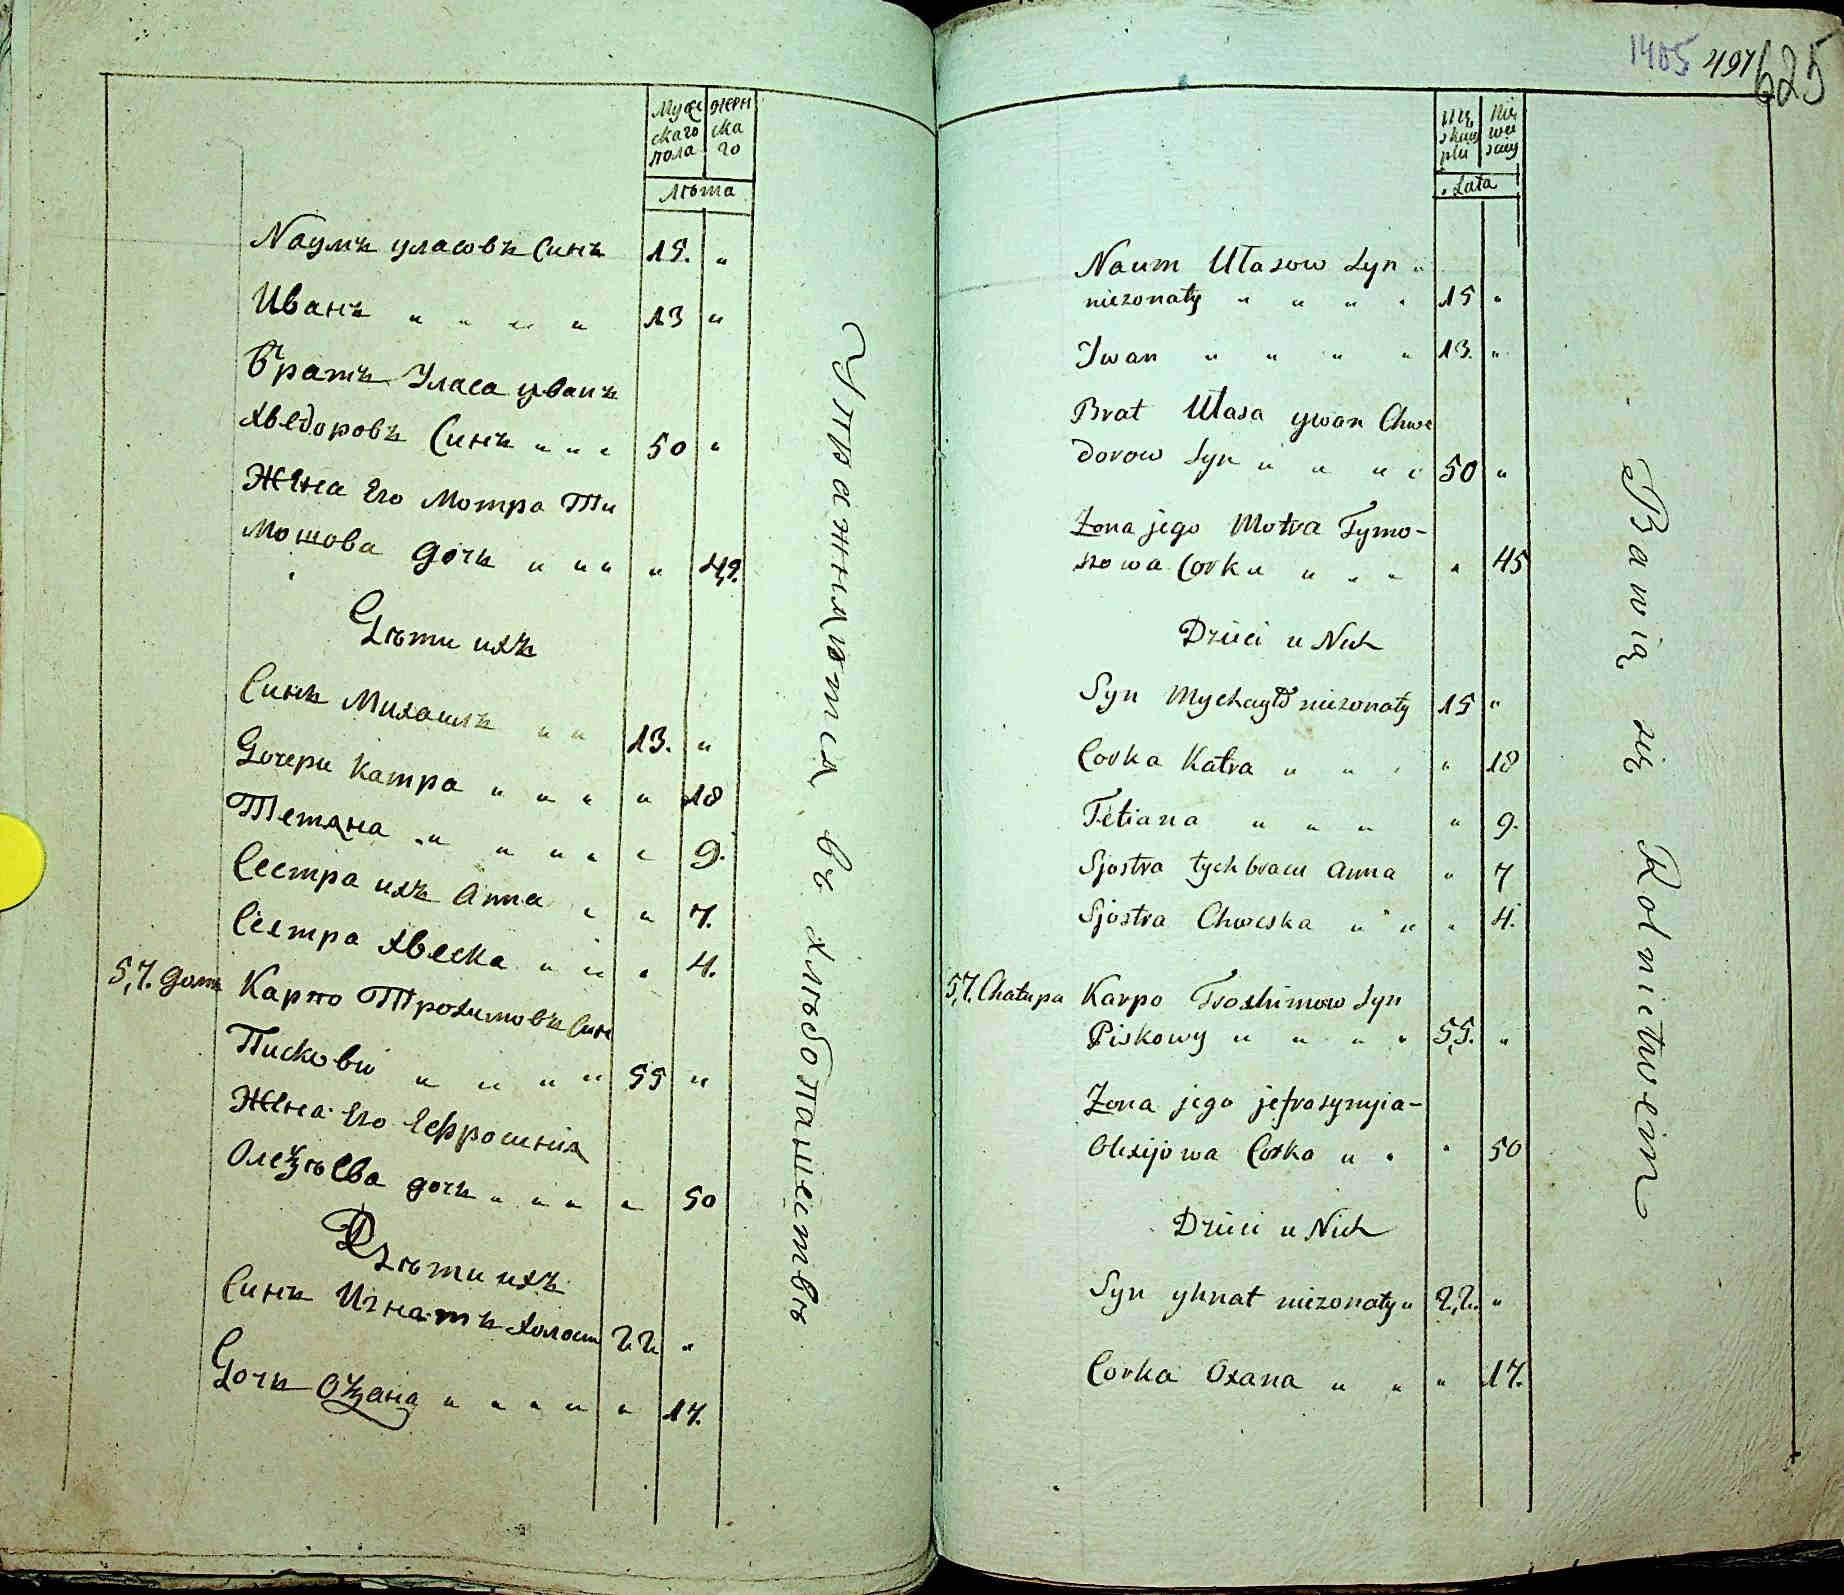 Муже
скаго
пола
женска
го
лѣта
Наумъ уласовъ Синъ 15. „
Иванъ „ „ „ „ 13 „
Братъ Уласа иванъ
хведоровъ Синъ „ „ „ 50 „
Жена Его Мотра Ти
мошова дочъ „ „ „ „
Дѣти ихъ
Синъ Михаилъ „ „ 13. „
Дочери Катра „ „ „ „ 18
Тетяна „ „ „ „ „ 9.
Сестра ихъ Анна „ „ 7.
Сестра хвеска „ „ „ 4.
57. домъ Карпо Трохимовъ Син
Писковій „ „ „ „ 55 „
Жена Его Ефросинія
Олеѯѣева дочъ „ „ „ „ 50
Дѣти ихъ
Синъ Игнатъ холост 22 „
Дочъ Оѯана „ „ „ „ „ 17.
Упражняются въ хлѣбопашествѣ
1405 497 625
Mę
skiey
płci
Lata
Naum Ułasow Syn „
niezonaty „ „ „ „ 15 „
Iwan „ „ „ „ 13. „
Brat Ułasa ywan Chwe
dorow Syn „ „ „ „ 50 „
Zona jego Motra Tymo-
szowa Corka „ „ „ „ 45
Dzieci u Nich
Syn Mychayło niezonaty 15 „
Corka Katra „ „ „ „ 18
Tetiana „ „ „ „ 9.
Sjostra tych braci Anna „ 7
Sjostra Chweska „ „ „ 4.
57. Chałupa Karpo Troxhimow Syn
Piskowy „ „ „ „ 55. „
Zona jego jefrosynyia-
Olexijowa Corka „ „ „ 50
Dzieci u Nich
Syn yhnat niezonaty „ 22. „
Corka Oxana „ „ „ 17.
Bawią się Rolnictwem